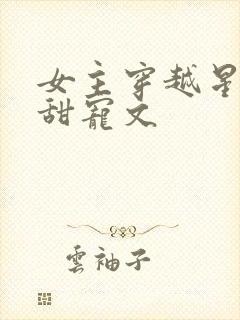 女主穿越星
甜寵文
雲袖子